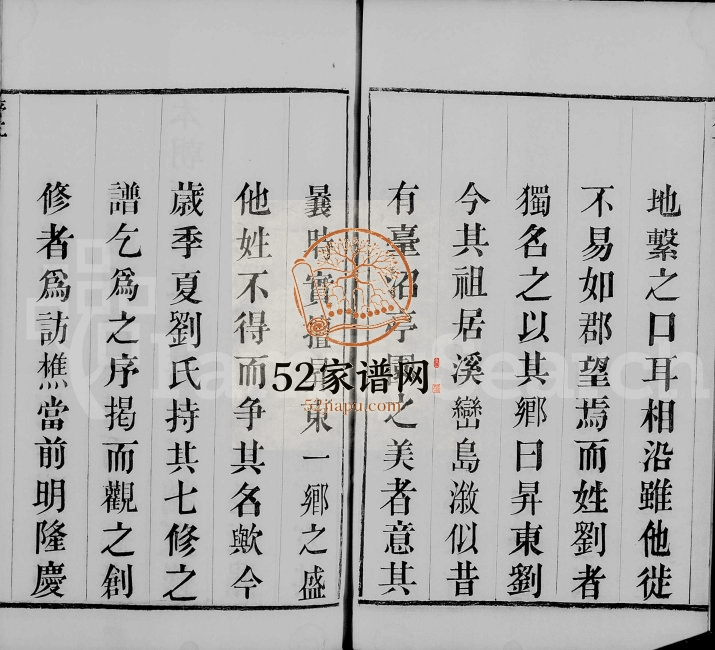 地繫之口耳相沿雖他徙
不易如郡望焉而姓劉者
獨名之以其鄉曰昇東劉
今其祖居溪巒島溆似昔
有臺沼亭園之美者意其
曩時實擅昇東一鄉之盛
他姓不得而争其名歟今
歲季夏劉氏持其七修之
譜乞爲之序揭而觀之創
修者爲訪樵當前明隆慶
52家谱网
52jiapu.com